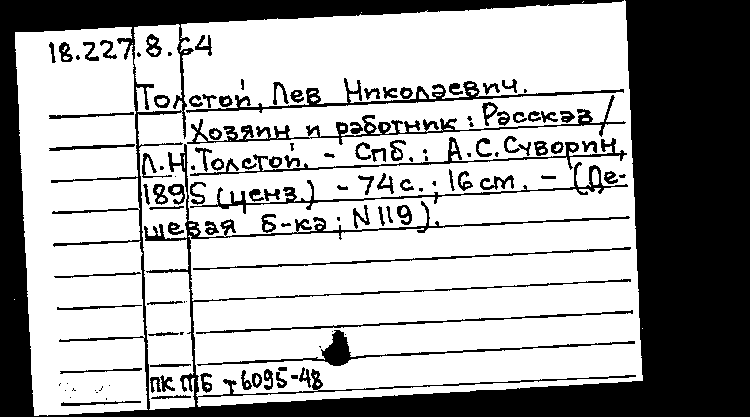 18.227.8.64
Толстой, Лев Николаевич.
Хозяин и работник : Рассказ /
Л.Н.Толстой. - Спб. : А.С.Суворин,
1895 (ценз.) - 74 с. ; 16 cm. - (Де-
шевая б-ка ; N 119).
ПК ПБ т 6095-48